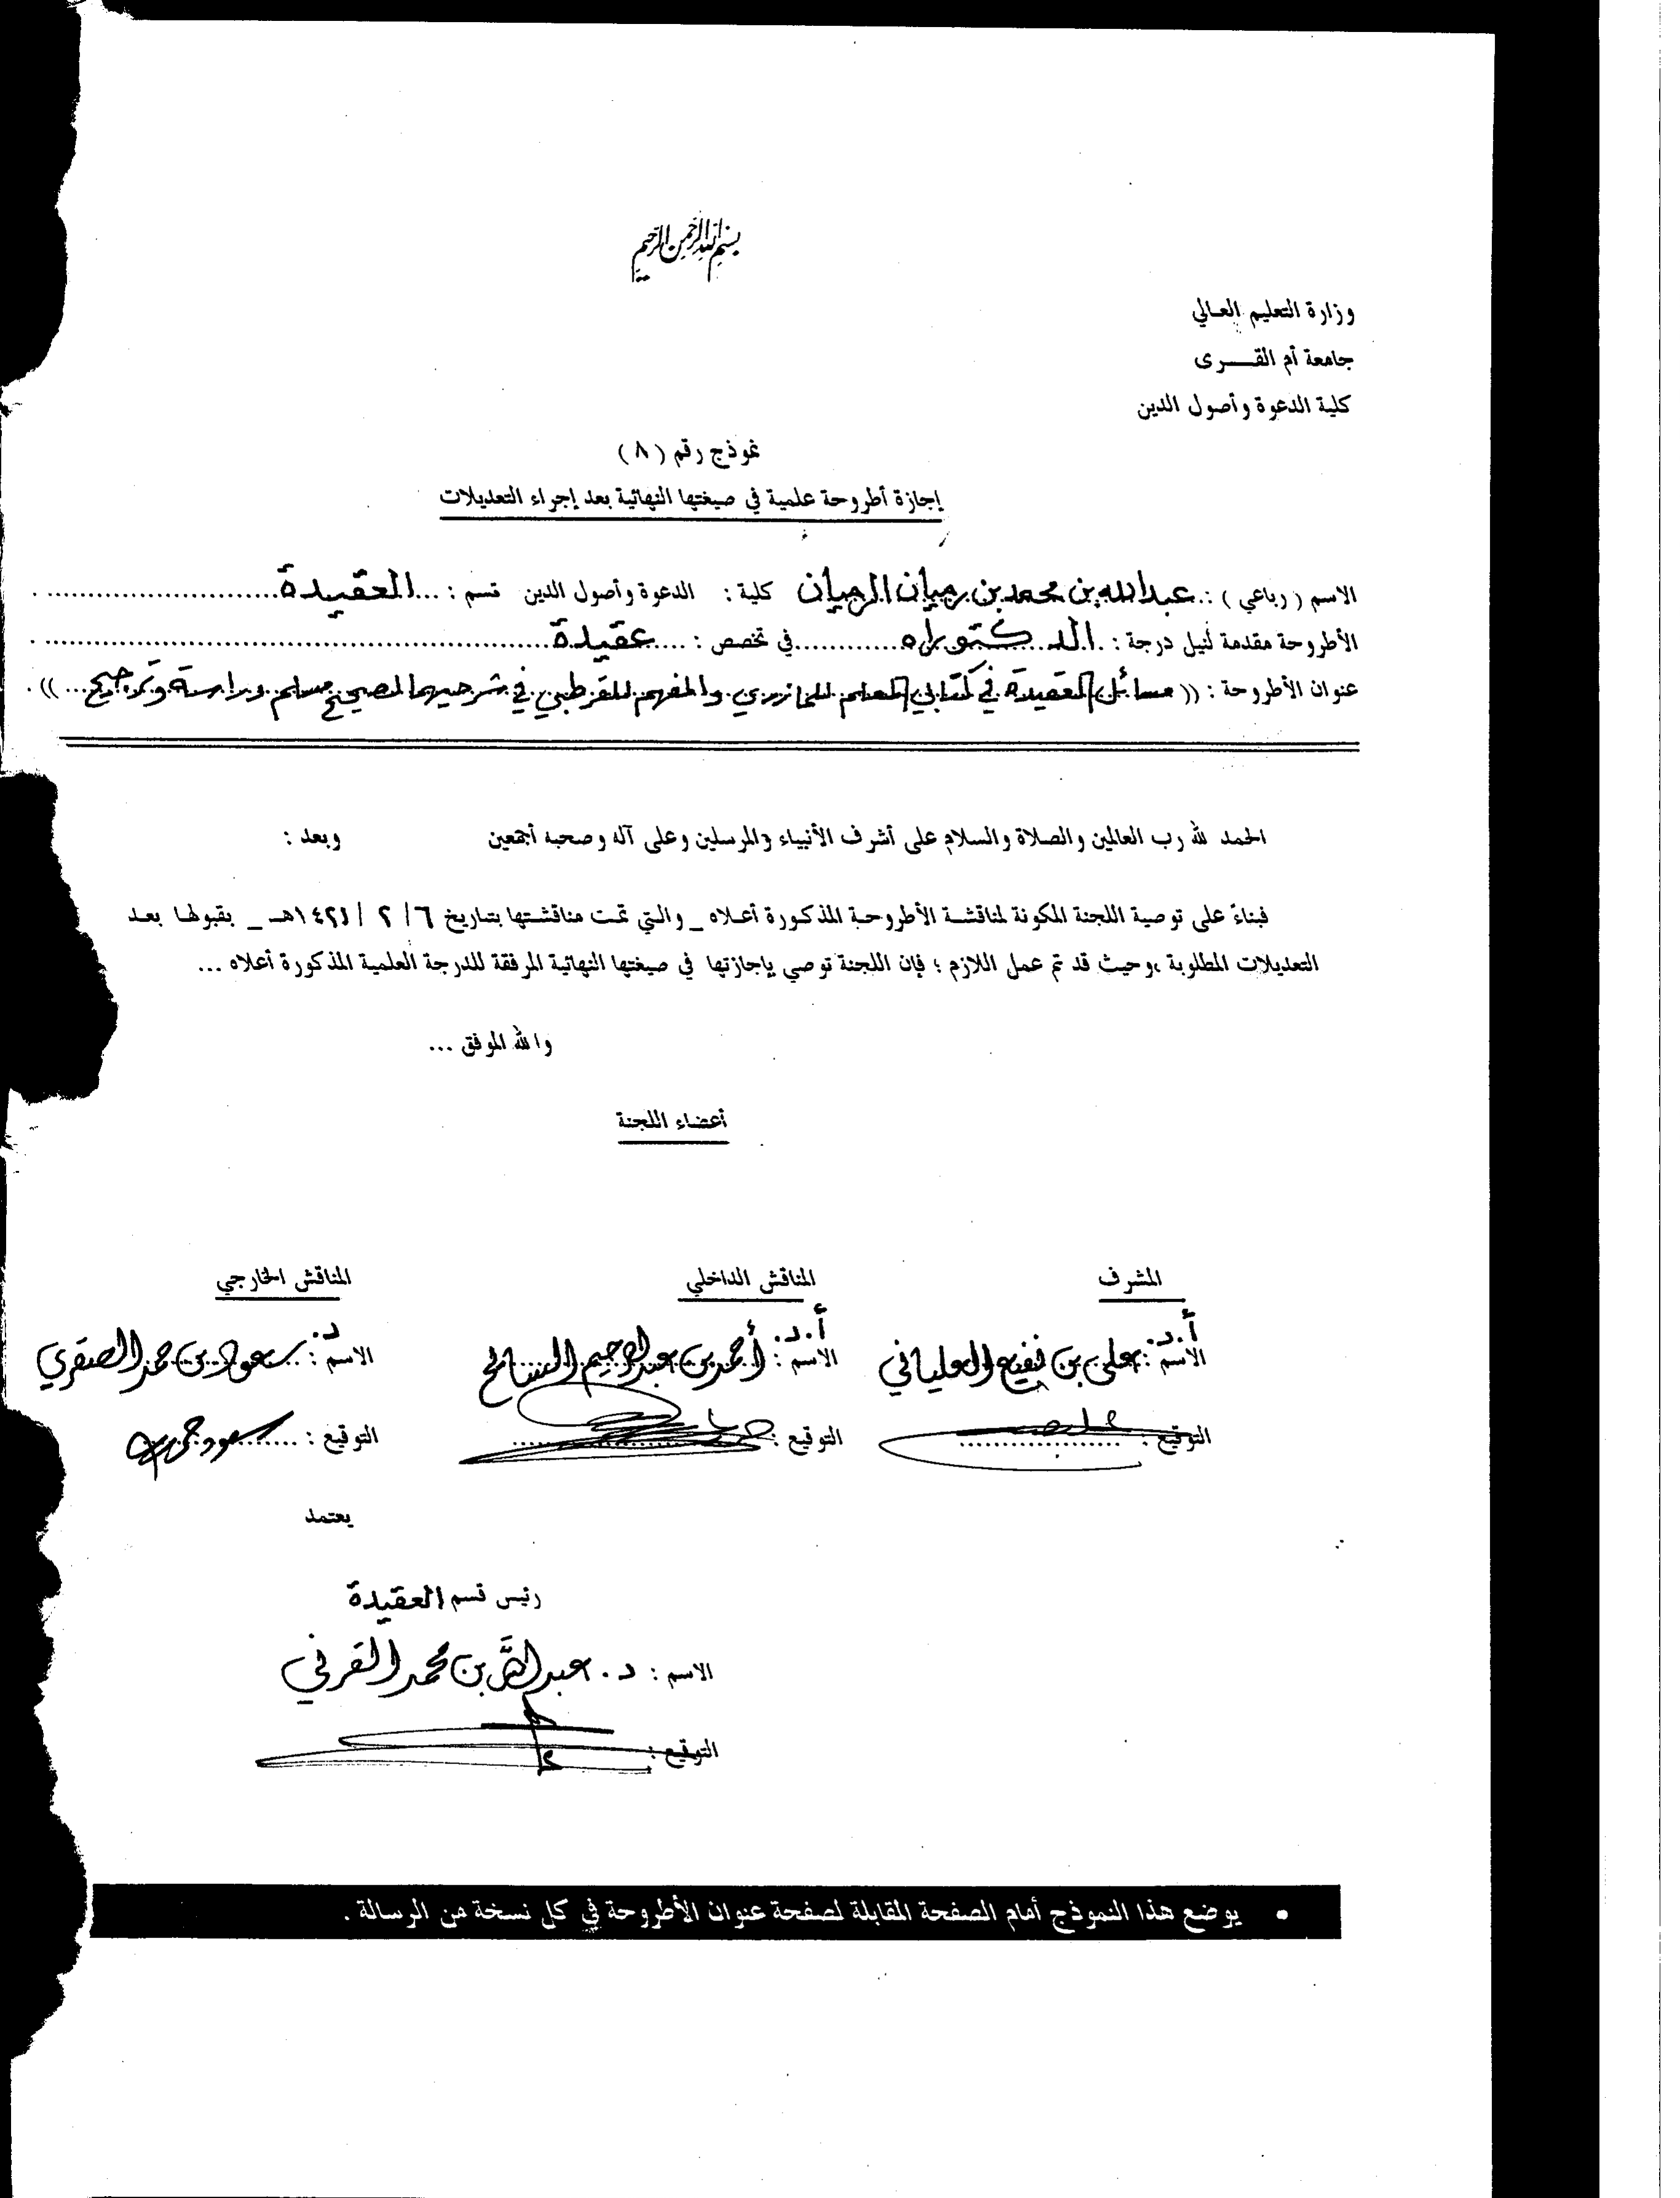 بسم الله الرحمن الرحيم
وزارة التعليم العالي
جامعة أم القــــرى
كلية الدعوة وأصول الدين
نموذج رقم ( ٨ )
إجازة أطروحة علمية في صيغتها النهائية بعد إجراء التعديلات
الاسم ( رباعي ) : عبدالله بن محمد بن رميان الرميان كلية : الدعوة وأصول الدين قسم : ... العقيدة
الأطروحة مقدمة لنيل درجة : .. الدكتوراه ............ في تخصص : ...... عقيدة
عنوان الأطروحة : (( مسائل العقيدة في كتابي المعلم للمازري والمفهم للقرطبي في شرحيهما لصحيح مسلم دراسة وترجيح ... )) .
الحمد لله رب العالمين والصلاة والسلام على أشرف الأنبياء والمرسلين وعلى آله وصحبه أجمعين وبعد :
فبناءً على توصية اللجنة المكونة لمناقشة الأطروحة المذكورة أعلاه _ والتي تمت مناقشتها بتاريخ ٦ / ٢ / ١٤٢١هـ _ بقبولها بعد
التعديلات المطلوبة ،وحيث قد تم عمل اللازم ؛ فإن اللجنة توصي بإجازتها في صيغتها النهائية المرفقة للدرجة العلمية المذكورة أعلاه ...
والله الموفق ...
أعضاء اللجنة
المشرف المناقش الداخلي المناقش الخارجي
الاسم : أ.د. علي بن نفيع العلياني الاسم : أ.د. أحمد بن عبدالرحيم السايح الاسم : د. سعود بن حمد الصقري
التوقيع : التوقيع : التوقيع :
يعتمد
رئيس قسم العقيدة
الاسم : د. عبدالله بن محمد القرني
التوقيع :
• يوضع هذا النموذج أمام الصفحة المقابلة لصفحة عنوان الأطروحة في كل نسخة من الرسالة .